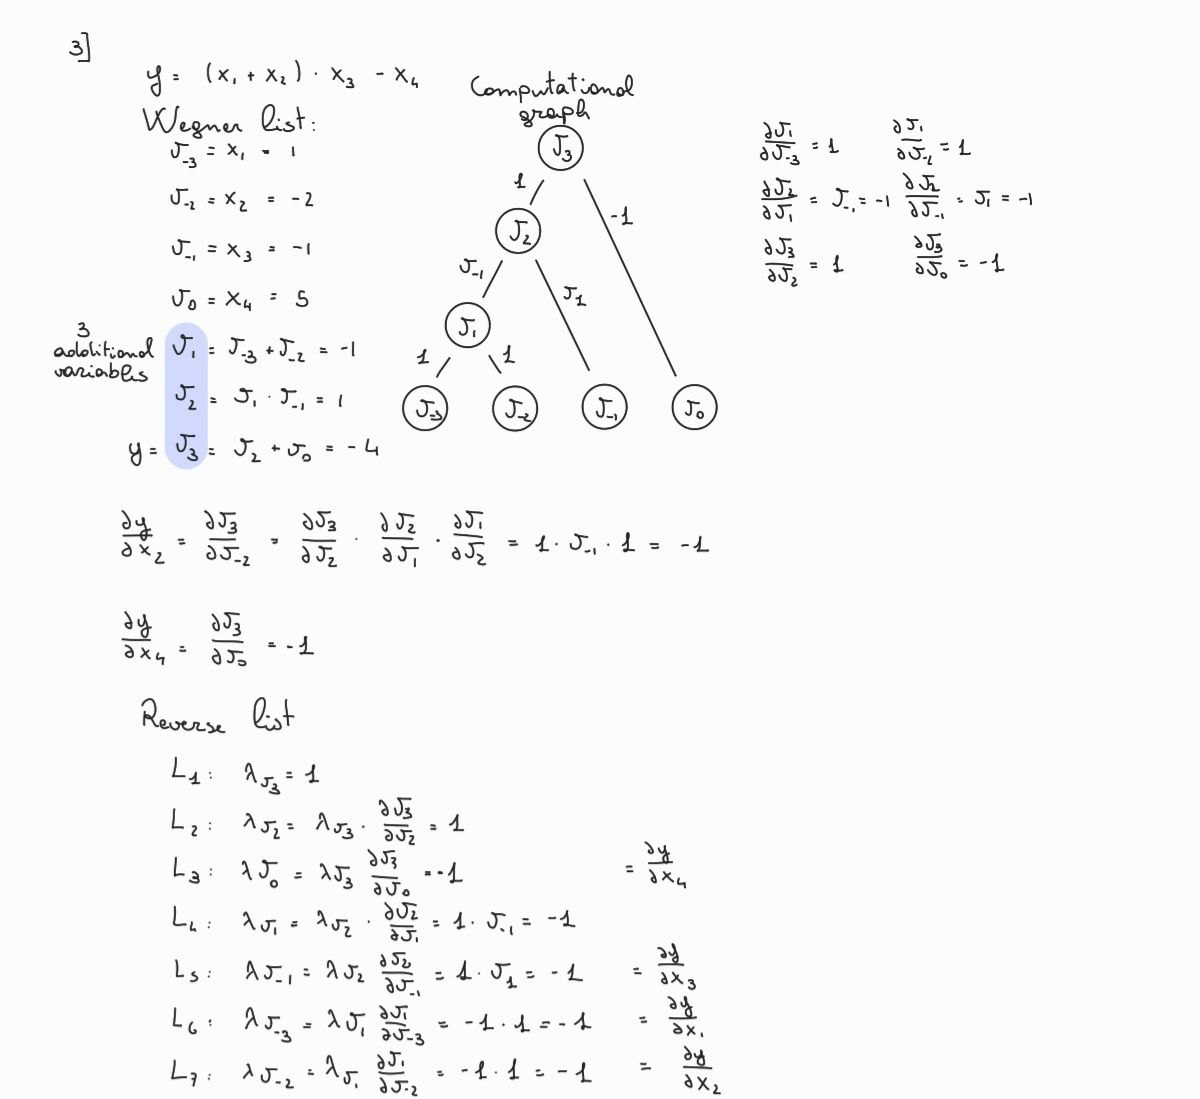 3]
y = (x₁ + x₂) · x₃ - x₄
Wegner list:
v₋₃ = x₁ = 1
v₋₂ = x₂ = -2
v₋₁ = x₃ = -1
v₀ = x₄ = 5
3 additional variables
v₁ = v₋₃ + v₋₂ = -1
v₂ = v₁ · v₋₁ = 1
y = v₃ = v₂ + v₀ = -4
Computational
graph
v₃
1
-1
v₂
v₋₁
v₁
v₁
1
1
v₋₃ v₋₂ v₋₁ v₀
∂v₁/∂v₋₃ = 1 ∂v₁/∂v₋₂ = 1
∂v₂/∂v₁ = v₋₁ = -1 ∂v₂/∂v₋₁ = v₁ = -1
∂v₃/∂v₂ = 1 ∂v₃/∂v₀ = -1
∂y/∂x₂ = ∂v₃/∂v₋₂ = ∂v₃/∂v₂ · ∂v₂/∂v₁ · ∂v₁/∂v₂ = 1 · v₋₁ · 1 = -1
∂y/∂x₄ = ∂v₃/∂v₀ = -1
Reverse list
L₁: λv₃ = 1
L₂: λv₂ = λv₃ · ∂v₃/∂v₂ = 1
L₃: λv₀ = λv₃ ∂v₃/∂v₀ = -1 = ∂y/∂x₄
L₄: λv₁ = λv₂ · ∂v₂/∂v₁ = 1 · v₋₁ = -1
L₅: λv₋₁ = λv₂ ∂v₂/∂v₋₁ = 1 · v₁ = -1 = ∂y/∂x₃
L₆: λv₋₃ = λv₁ ∂v₁/∂v₋₃ = -1 · 1 = -1 = ∂y/∂x₁
L₇: λv₋₂ = λv₁ ∂v₁/∂v₋₂ = -1 · 1 = -1 = ∂y/∂x₂